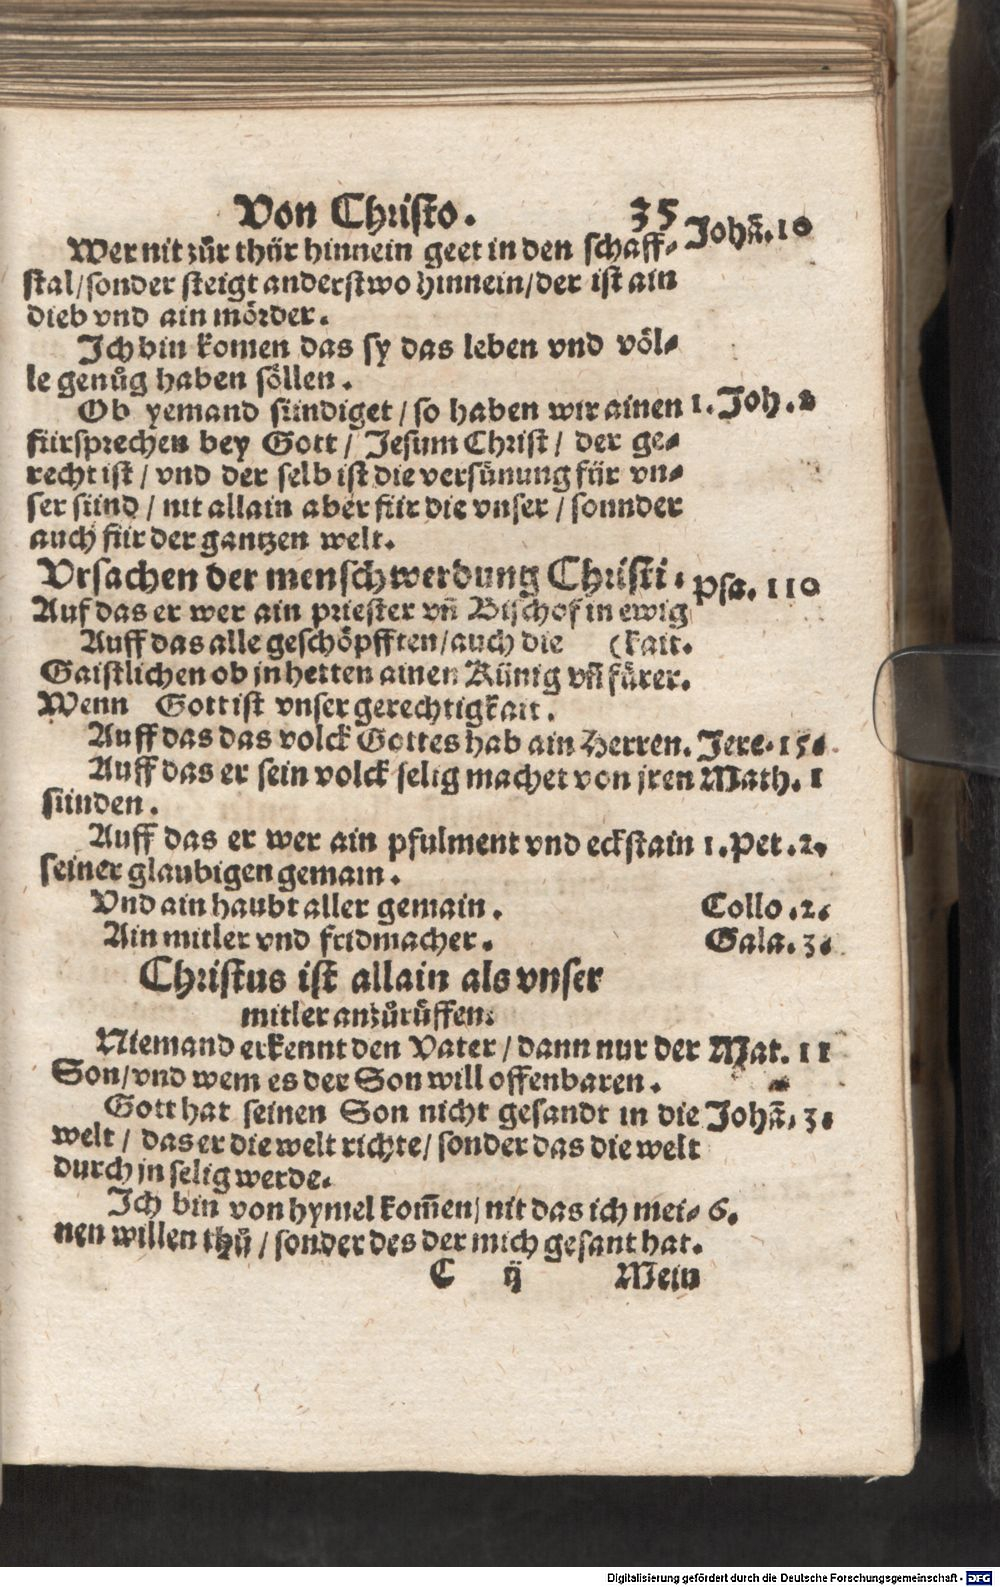 Von Christo. 35
Wer nit zůr thür hinnein geet in den schaff- Johã. 10
stal/sonder steigt anderstwo hinnein/der ist ain
dieb vnd ain mörder.
Ich bin komen das sy das leben vnd völ-
le genůg haben söllen.
Ob yemand sündiget / so haben wir ainen 1. Joh. 2
fürsprechen bey Gott / Jesum Christ / der ge-
recht ist / vnd der selb ist die versünung für vn-
ser sünd / nit allain aber für die vnser / sonnder
auch für der gantzen welt.
Vrsachen der menschwerdung Christi. Psa. 110
Auf das er wer ain priester vñ Bischof in ewig
Auff das alle geschöpfften/auch die (kait.
Gaistlichen ob jn hetten ainen Künig vñ fürer.
Wenn Gott ist vnser gerechtigkait.
Auff das das volck Gottes hab ain Herren. Jere. 15.
Auff das er sein volck selig machet von jren Math. 1
sünden.
Auff das er wer ain pfulment vnd eckstain 1. Pet. 2.
seiner glaubigen gemain.
Vnd ain haubt aller gemain. Collo. 2.
Ain mitler vnd fridmacher. Gala. 3.
Christus ist allain als vnser
mitler anzůrüffen.
Niemand erkennt den Vater / dann nur der Mat. 11
Son/vnd wem es der Son will offenbaren.
Gott hat seinen Son nicht gesandt in die Johã. 3.
welt / das er die welt richte/ sonder das die welt
durch jn selig werde.
Ich bin von hymel kom̃en/ nit das ich mei- 6.
nen willen thů / sonder des der mich gesant hat.
C ij Mein
Digitalisierung gefördert durch die Deutsche Forschungsgemeinschaft - DFG